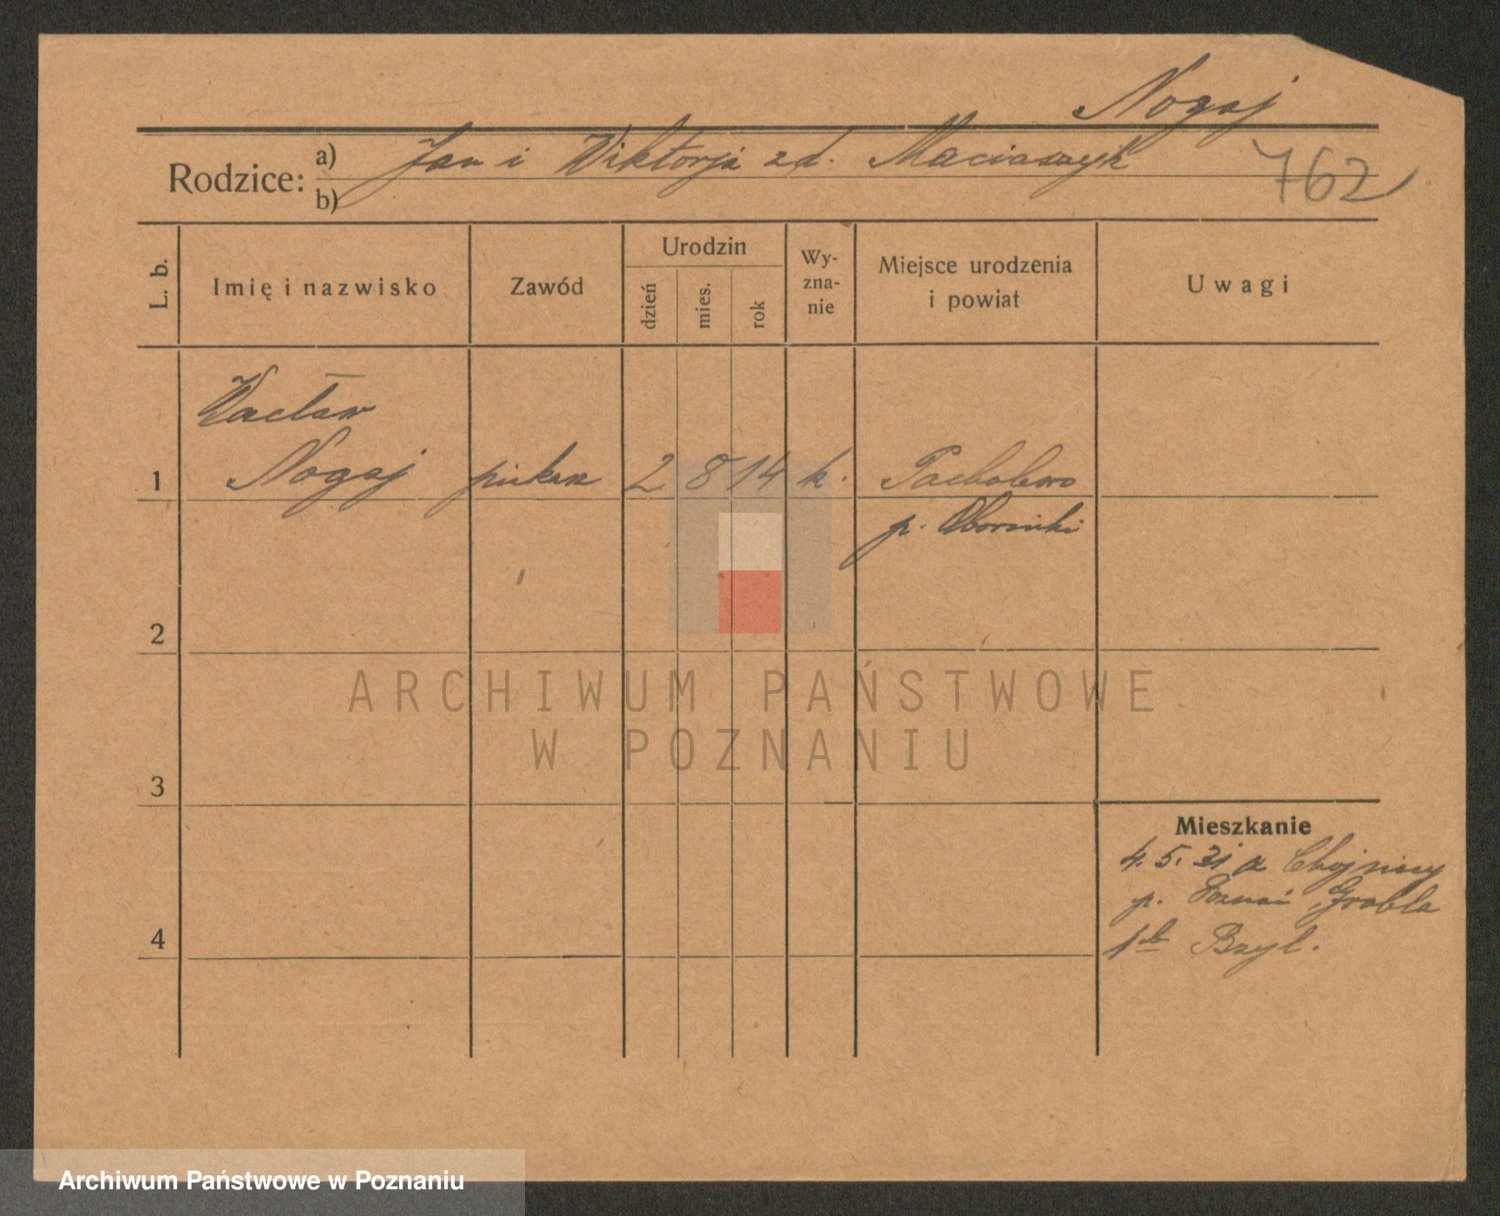 Nogaj
Rodzice: a) Jan i Wiktorja zd. Maciaszyk
b)
762
L. b.
Imię i nazwisko
Zawód
Urodzin
dzień
mies.
rok
Wy-
zna-
nie
Miejsce urodzenia
i powiat
Uwagi
Wacław
1 Nogaj piekarz 2 8 14 k. Pacholewo
p. Oborniki
2
ARCHIWUM PAŃSTWOWE
W POZNANIU
3
Mieszkanie
4.5.31 z Chojnicy
p. Poznań Grobla
Bzyl.
4
Archiwum Państwowe w Poznaniu